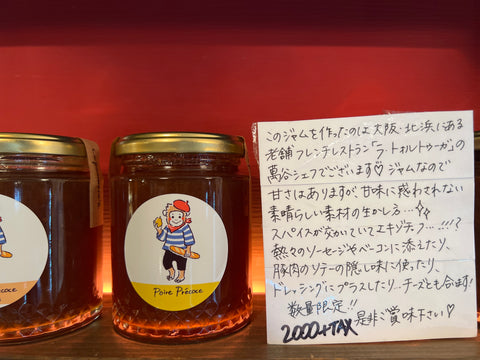 Poire Précoce
このジャムを作ったのは大阪・北浜にある
老舗フレンチレストラン「ラ・トォルトゥーガ」の
萬谷シェフでございます♡ジャムなので
甘さはありますが、甘味に惑わされない
素晴らしい素材の生かし方…✧
スパイスがなかいていてエキゾチック…!!!?
熱々のソーセージやベーコンに添えたり、
豚肉のソテーの隠し味に使ったり、
ドレッシングにプラスしたり…チーズとも合います!
数量限定!!
2000+TAX 是非ご賞味下さい♡